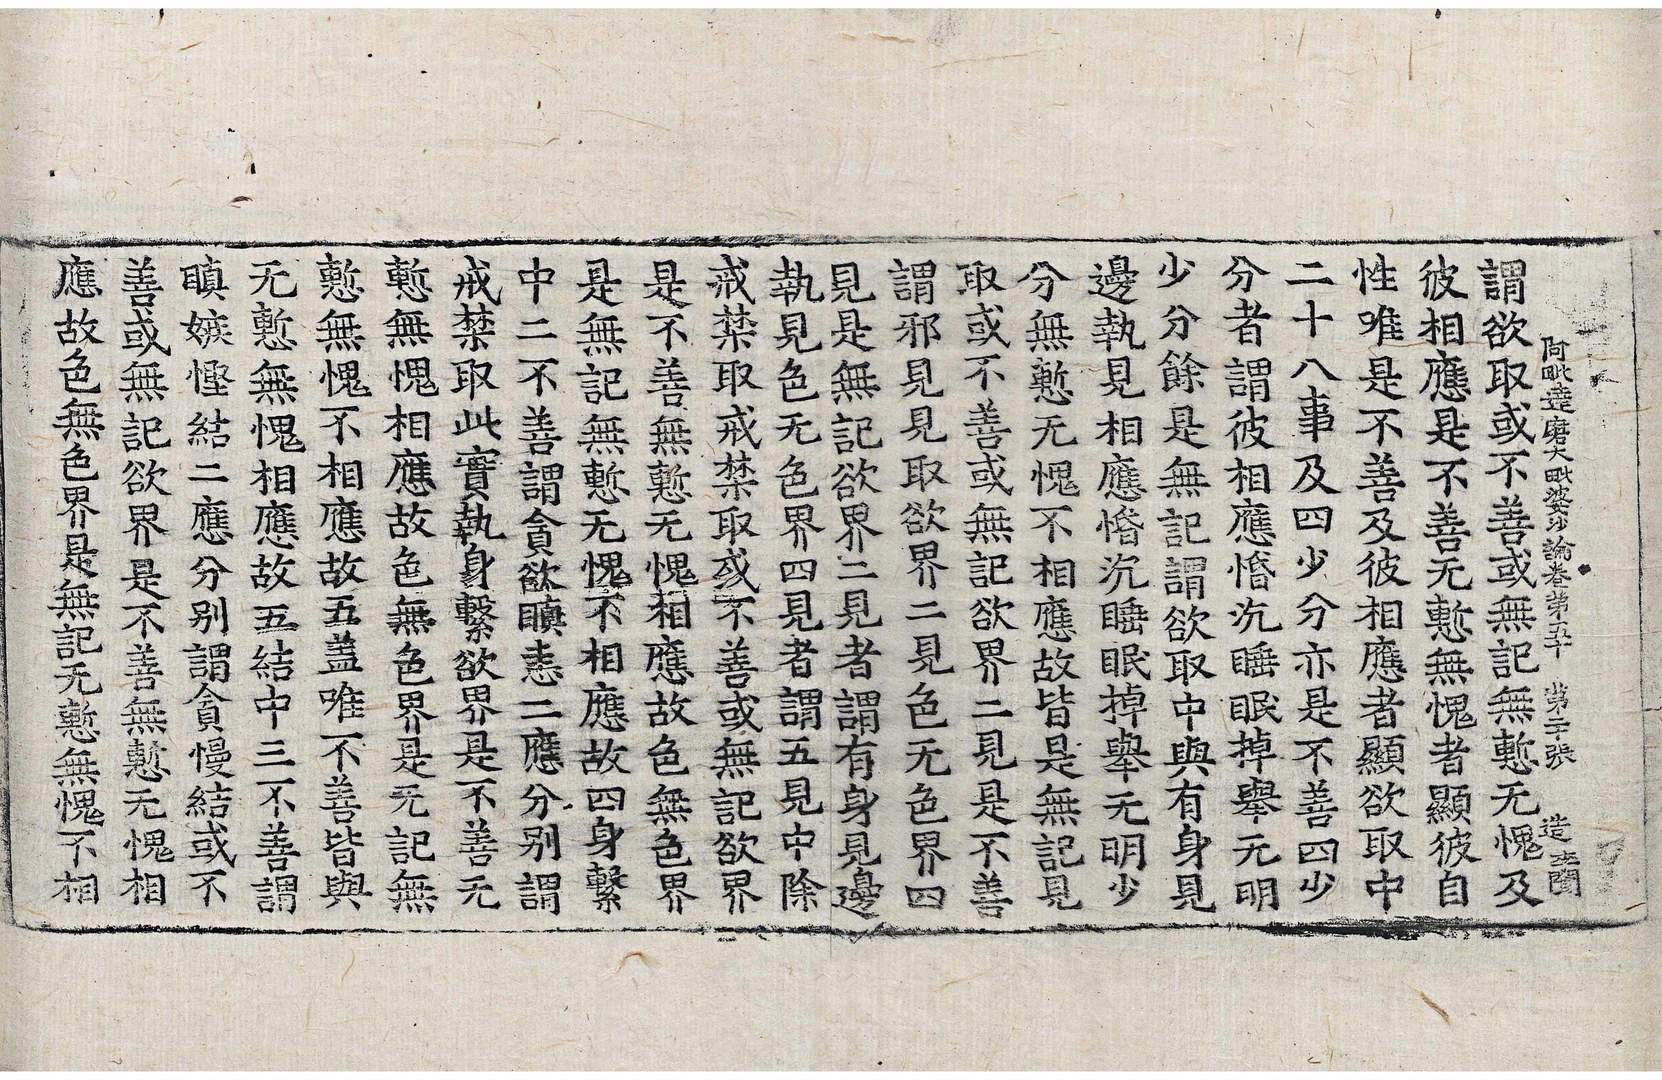 阿毗達磨大毗婆沙論卷第五十 第二張 造
謂欲取或不善或無記無慙无愧及
彼相應是不善无慙無愧者顯彼自
性唯是不善及彼相應者顯欲取中
二十八事及四少分亦是不善四少
分者謂彼相應惛沉睡眠掉舉无明
少分餘是無記謂欲取中與有身見
邊執見相應惛沉睡眠掉舉无明少
分無慙无愧不相應故皆是無記見
取或不善或無記欲界二見是不善
謂邪見見取欲界二見色无色界四
見是無記欲界二見者謂有身見邊
執見色无色界四見者謂五見中除
戒禁取戒禁取或不善或無記欲界
是不善無慙无愧相應故色無色界
是無記無慙无愧不相應故四身繫
中二不善謂貪欲瞋恚二應分別謂
戒禁取此實執身繫欲界是不善无
慙無愧相應故色無色界是无記無
慙無愧不相應故五蓋唯不善皆與
无慙無愧相應故五結中三不善謂
瞋嫉慳結二應分別謂貪慢結或不
善或無記欲界是不善無慙无愧相
應故色無色界是無記无慙無愧不相